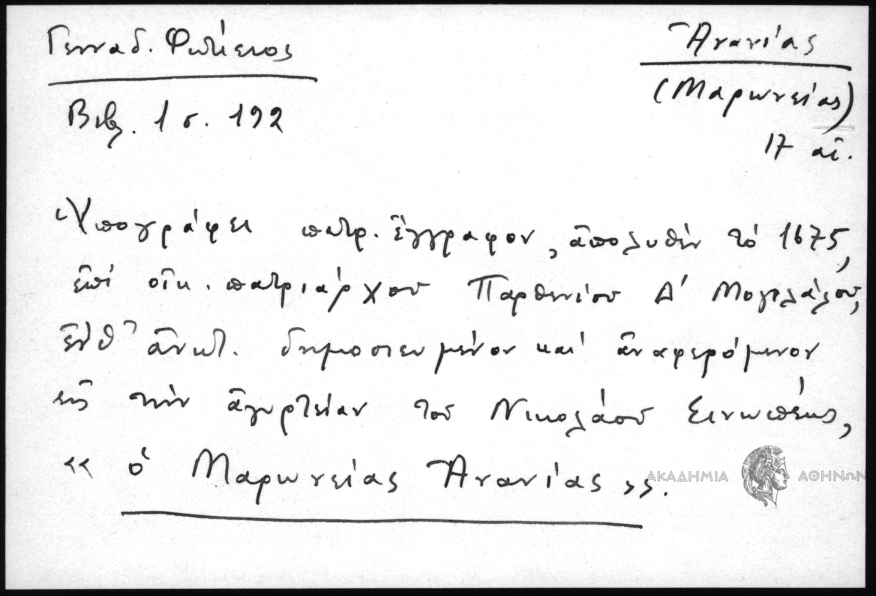 Γενναδ. Φωτίειος
Ἀνανίας
Βιβ. 1 σ. 192
(Μαρωνείας)
17 αἰ.
Ὑπογράφει πατρ. ἔγγραφον, ἀπολυθὲν τὸ 1675,
ἐπὶ οἰκ. πατριάρχου Παρθενίου Δ' Μογιλάλου,
ἐνθ' ἀνωτ. δημοσιευμένον καὶ ἀναφερόμενον
εἰς τὴν ἀγυρτείαν τοῦ Νικολάου Σινωπέως,
«ὁ Μαρωνείας Ἀνανίας».
ΑΚΑΔΗΜΙΑ ΑΘΗΝΩΝ